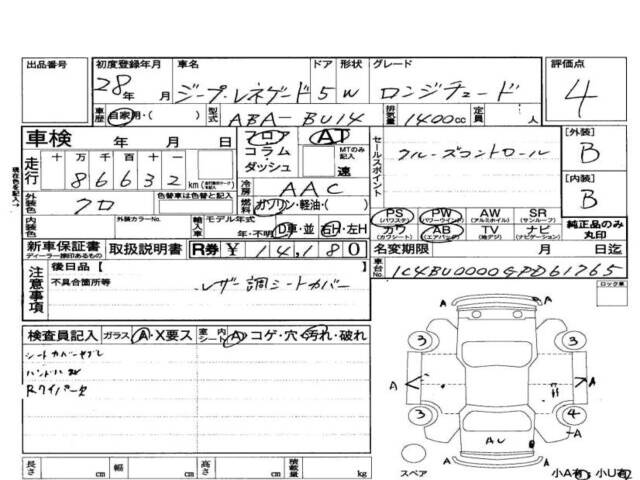 出品番号 初度登録年月 車名 ドア 形状 グレード 評価点
28年 月 ジープ・レネゲード 5 W ロンジチュード 4
車歴 自家用・( ) 型式 ABA-BU14 排気量 1400cc 定員 人
車検 年 月 日 フロア コラム ダッシュ AT MTのみ記入 速
セールスポイント クルーズコントロール
[外装] B
走行 十 万 千 百 十 一
86632 km
冷房 AAC
[内装] B
外装色 クロ 色替車は色替と記入 燃料 ガソリン・軽油・( )
PS (パワステ) PW (パワーウインド) AW (アルミホイル) SR (サンルーフ)
純正品のみ丸印
内装色 外装カラーNo. 輸入車 モデル年式 年・不明 D車・並 右H・左H
カワ AB (エアバッグ) TV (地デジ) ナビ (ナビゲーション)
新車保証書 ディーラー捺印あるもの 取扱説明書 R券 ¥ 14,180
名変期限 月 日迄
注意事項 後日品【 】
車台No. 1C4BU0000GPD61765
不具合箇所等 レザー調シートカバー
ロック車
検査員記入 ガラス A・X要ス 室内 シート A コゲ・穴・汚れ・破れ
シートカバーヤブレ
Rワイパー欠
3 3
A A A
3 4
A
AU
A
スペア
小A有 小U有
長さ cm 幅 cm 高さ cm 積載量 kg
現在色を記入